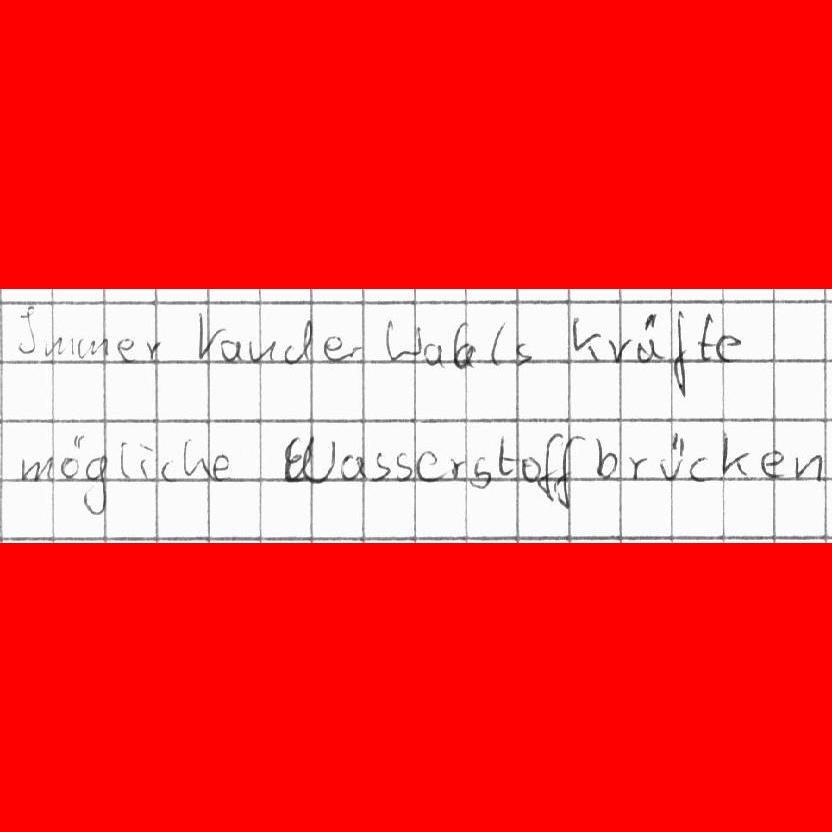 Immer Vander Waals Kräfte
mögliche Wasserstoffbrücken